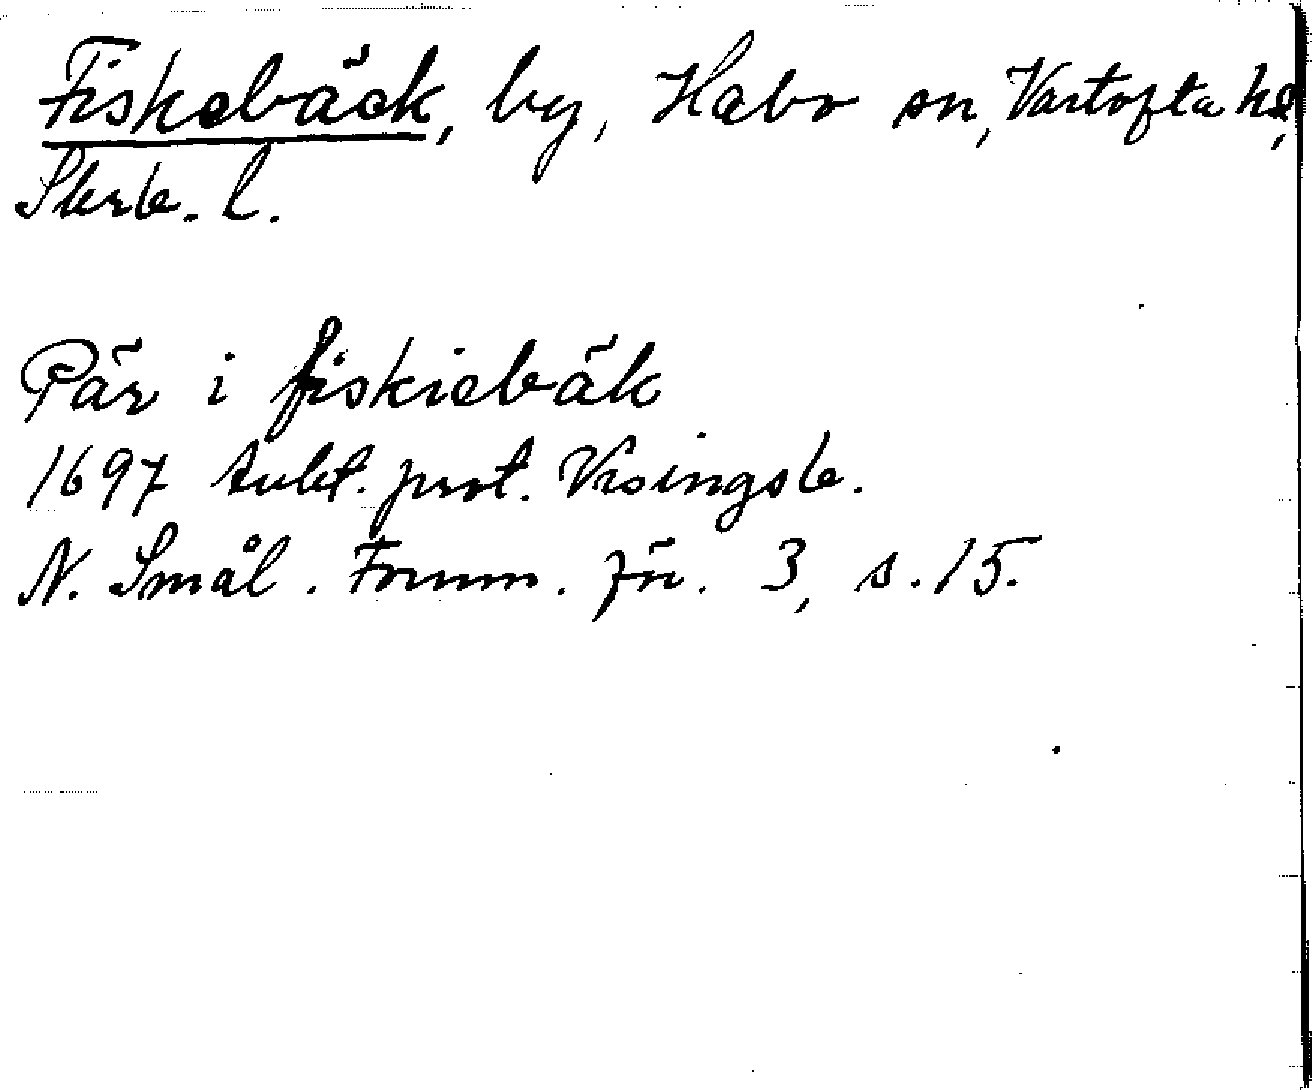 Fiskebäck, by, Habo sn, Vartofta hd,
Skrb. l.
Pär i fiskiebäk
1697 Aukt. prot. Visingsb.
N. Smål. Fornm. för. 3, s. 15.